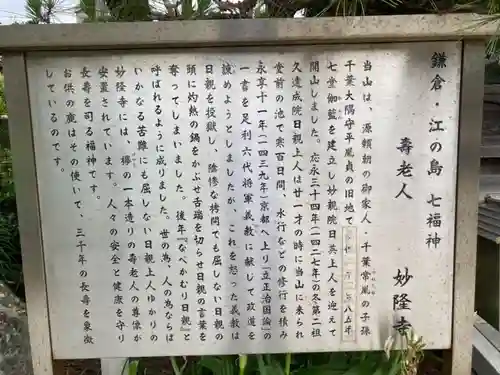 鎌倉・江の島 七福神
寿老人 妙隆寺
当山は、源頼朝の御家人・千葉常胤の子孫
千葉大隅守平胤貞の旧地で
七堂伽藍を建立し妙親院日英上人を迎えて
開山しました。応永三十四年(一四二七年)の冬第二祖
久遠成院日親上人は廿一才の時に当山に来られ
堂前の池で寒百日間、水行などの修行を積み
永享十一年(一四三九年)京都へ上り「立正治国論」の
一書を足利六代将軍義教に献して政道を
諌めようとしましたが、これを怒った義教は
日親を投獄し、陰惨な拷問にも屈しない日親の
頭に灼熱の鍋をかぶせ舌端を切らせ日親の言葉を
奪ってしまいました。後年『なべかむり日親』と
呼ばれるように成りました。世の為、人の為ならば
いかなる苦難にも屈しない日親上人ゆかりの
妙隆寺には、欅の一本造りの寿老人の尊像が
安置されています。人々の安全と健康を守り
長寿を司る福神です。
お供の鹿はその使いで、三千年の長寿を象徴
しているのです。